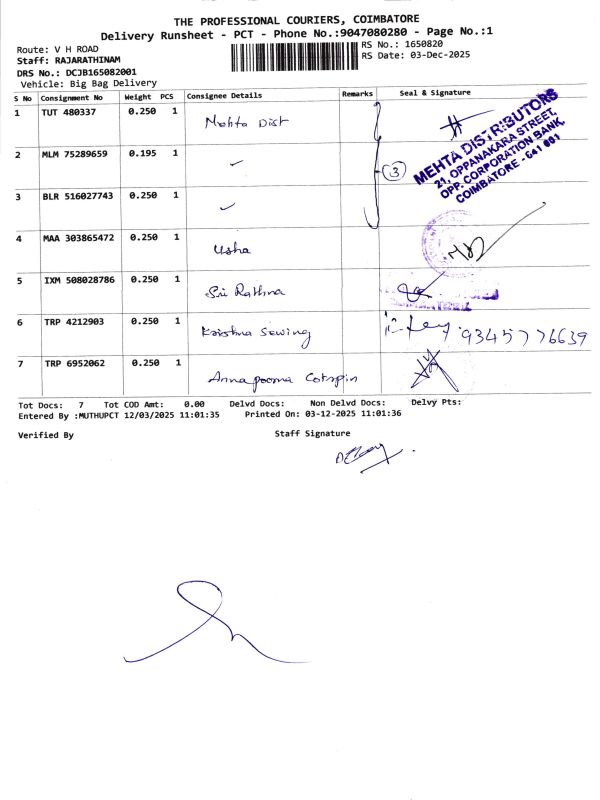 THE PROFESSIONAL COURIERS, COIMBATORE
Delivery Runsheet - PCT - Phone No.:9047080280 - Page No.:1
Route: V H ROAD
RS No.: 1650820
Staff: RAJARATHINAM
RS Date: 03-Dec-2025
DRS No.: DCJB165082001
Vehicle: Big Bag Delivery
S No Consignment No Weight PCS Consignee Details Remarks Seal & Signature
1 TUT 480337 0.250 1 Mehta Dist
2 MLM 75289659 0.195 1 ✓
3 BLR 516027743 0.250 1 ✓
3
MEHTA DISTRIBUTORS
21, OPPANAKARA STREET,
OPP. CORPORATION BANK,
COIMBATORE - 641 001
4 MAA 303865472 0.250 1 Usha
5 IXM 508028786 0.250 1 Sri Rathna
6 TRP 4212903 0.250 1 Krishna Sewing 9345776639
7 TRP 6952062 0.250 1 Annapoorna Cotspin
Tot Docs: 7 Tot COD Amt: 0.00 Delvd Docs: Non Delvd Docs: Delvy Pts:
Entered By :MUTHUPCT 12/03/2025 11:01:35 Printed On: 03-12-2025 11:01:36
Verified By Staff Signature